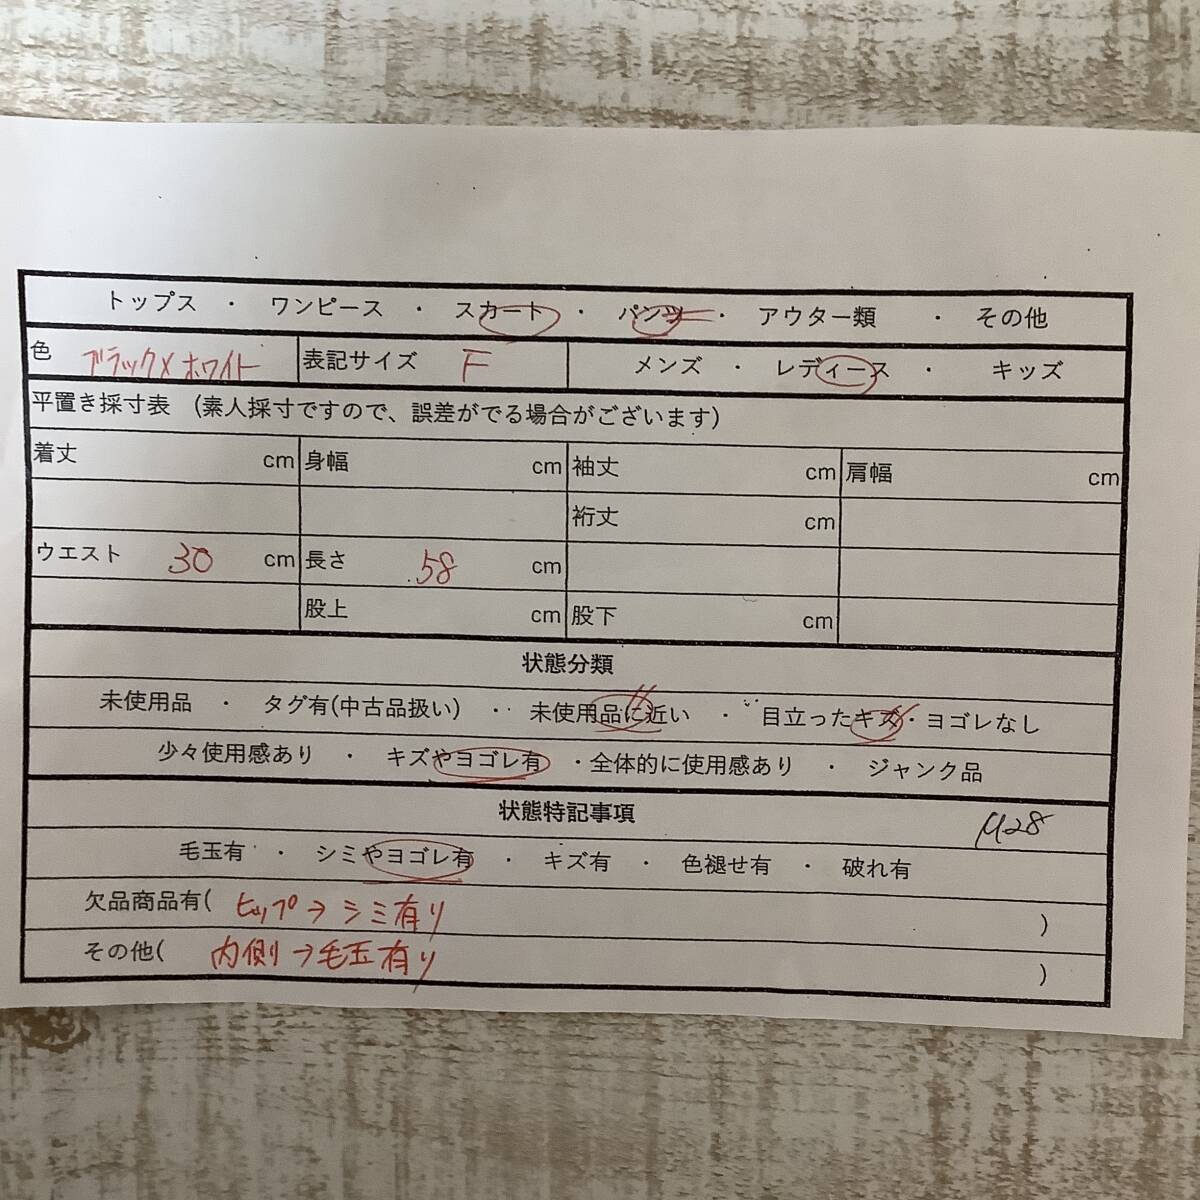 トップス ・ ワンピース ・ スカート ・ パンツ ・ アウター類 ・ その他
色 ブラック×ホワイト 表記サイズ F メンズ ・ レディース ・ キッズ
平置き採寸表 (素人採寸ですので、誤差がでる場合がございます)
着丈 cm 身幅 cm 袖丈 cm 肩幅 cm
裄丈 cm
ウエスト 30 cm 長さ 58 cm
股上 cm 股下 cm
状態分類
未使用品 ・ タグ有(中古品扱い) ・ 未使用品に近い ・ 目立ったキズ・ヨゴレなし
少々使用感あり ・ キズやヨゴレ有 ・全体的に使用感あり ・ ジャンク品
状態特記事項
M28
毛玉有 ・ シミやヨゴレ有 ・ キズ有 ・ 色褪せ有 ・ 破れ有
欠品商品有( ヒップ→シミ有り )
その他( 内側→毛玉有り )